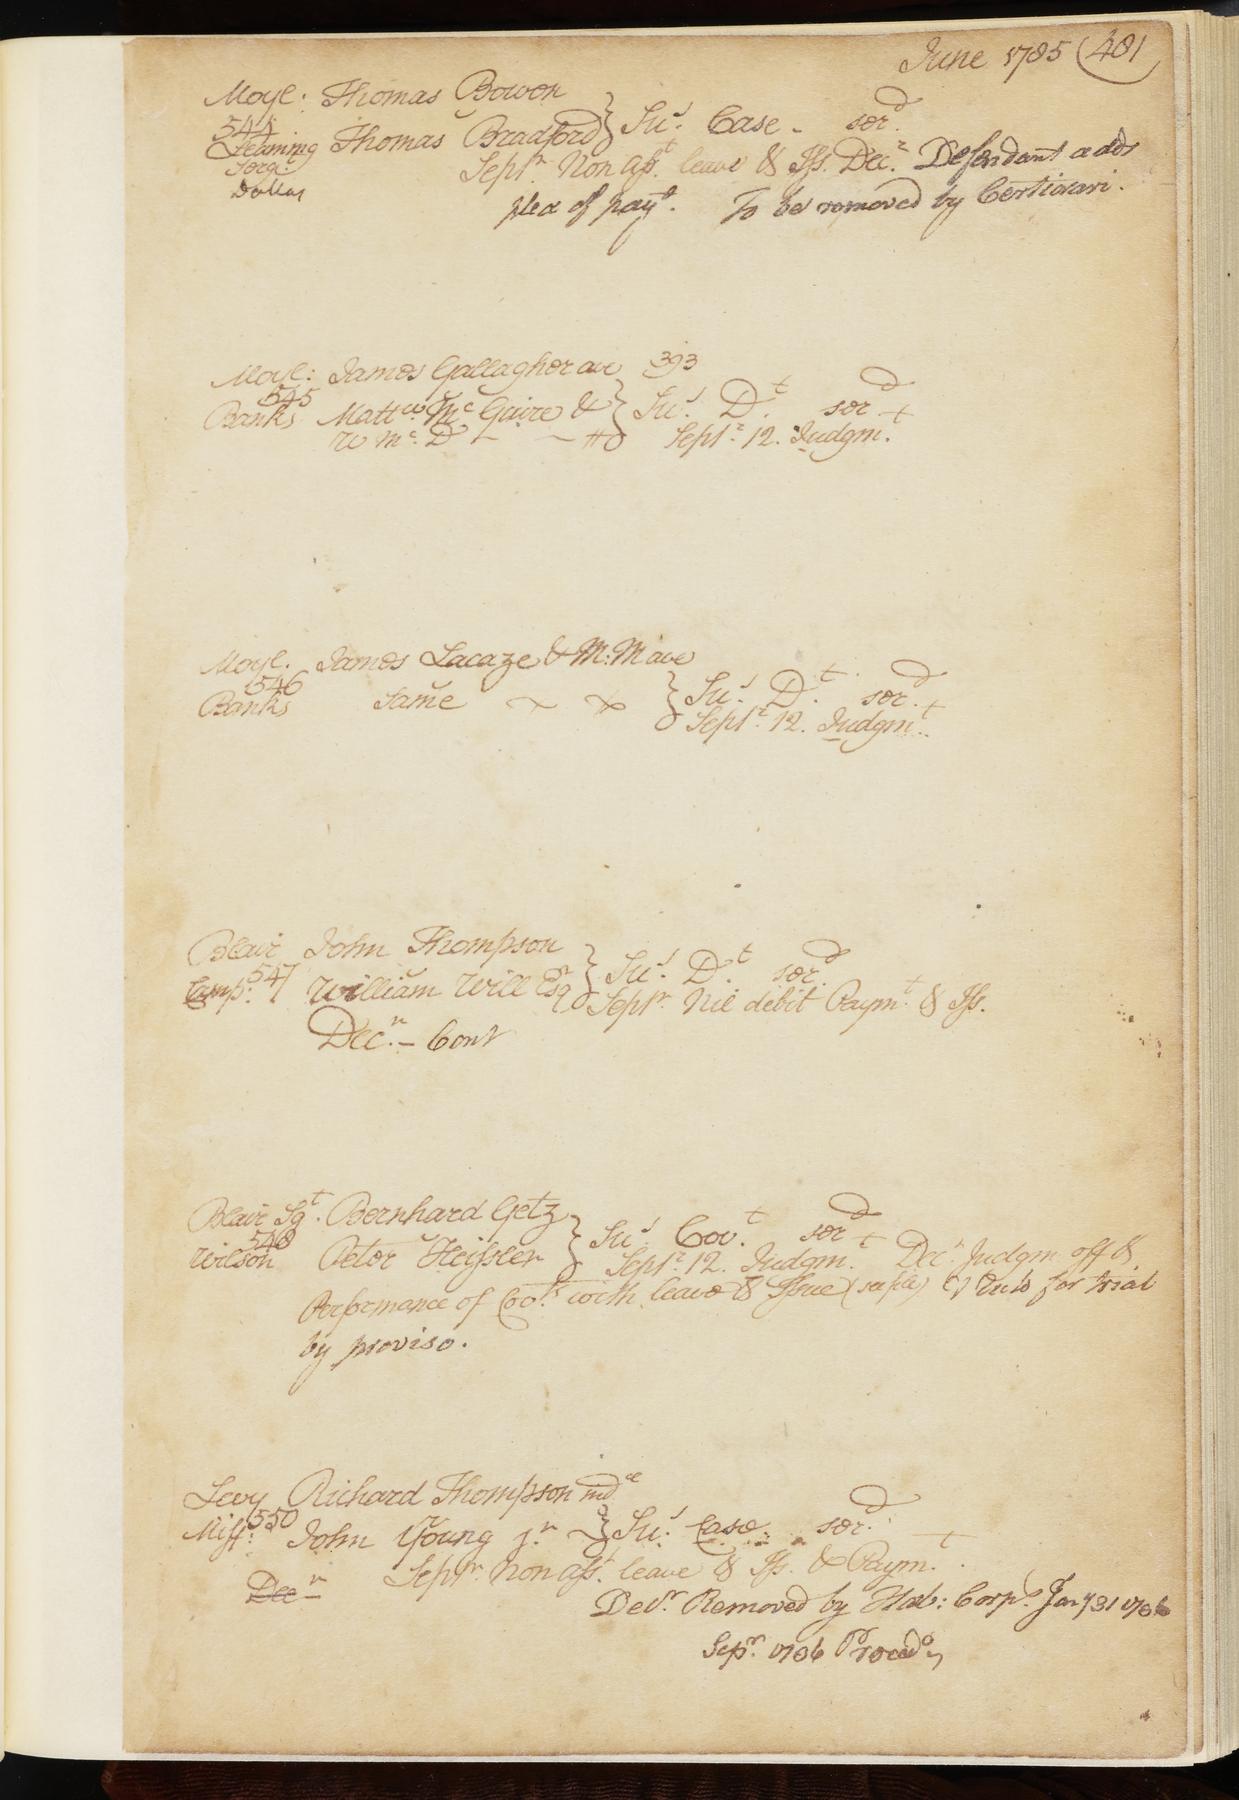 June 1785 (481
Moyl: Thomas Bowen
544 v
Leaming Thomas Bradford } Sus. Case - ser.d
Serg.t Sept.r Non ass.t leave & Iss. Dec.r Defendant adds
Dallas plea of paym.t To be removed by Certiorari.
Moyl: James Gallagher 393
545 v
Banks Matt.w Mc Guire & } Sus. D.t ser.d
W Mc D Sept.r 12. Judgm.t
Moyl. James Lacaze & M. M
546 v
Banks Same } Sus. D.t ser.d
Sept.r 12. Judgm.t
Blair John Thompson
547 v
Camp: William Will Esq.r } Sus. D.t ser.d
Sept.r Nil debit Paym.t & Iss.
Dec.r - Cont
Blair Sg.t Bernhard Getz
548 v
Wilson Peter Heissler } Sus. Cov.t ser.d
Sept.r 12. Judgm.t Dec.r Judgm off &
Performance of Cov.ts with leave & Issue Rule for trial
by proviso.
Levy Richard Thompson ind.ee
550 v
Miff: John Young j.r } Sus. Case. ser.d
Sept.r Non ass.t leave & Iss. & Paym.t
Dec.r
Dec.r Removed by Hab: Corp.s Jan.y 31 1786
Sep.r 1786 Proced.o